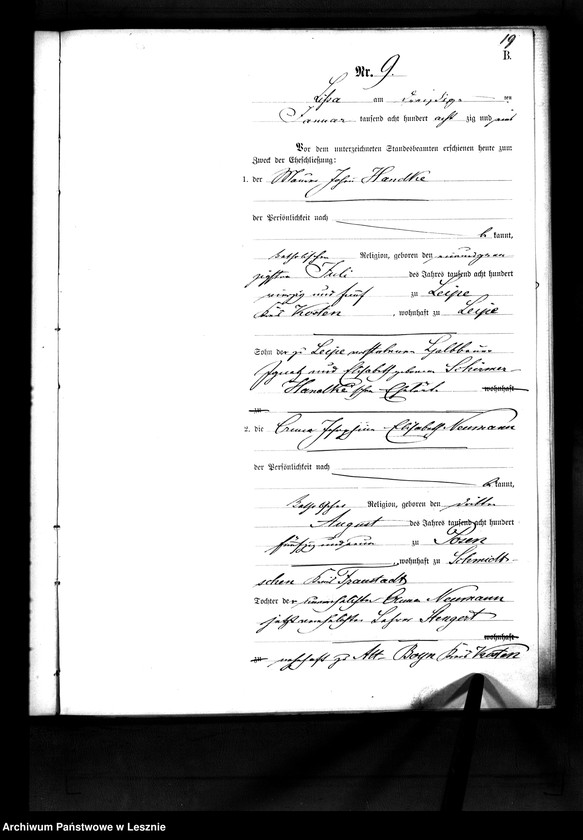 19
B.
Nr. 9.
Lissa am dreißigsten
Januar tausend acht hundert acht zig und
Vor dem unterzeichneten Standesbeamten erschienen heute zum
Zweck der Eheschließung:
1. der Maurer Johann Handke
der Persönlichkeit nach
be kannt,
katholischer Religion, geboren den
Juli des Jahres tausend acht hundert
vierzig und fünf zu Leipe
Kreis Kosten, wohnhaft zu Leipe
Sohn der zu Leipe verstorbenen
Ignatz und Elisabeth geborenen Schirmer
Handkeschen Eheleute wohnhaft
zu
2. die Anna Josephina Elisabeth Neumann
der Persönlichkeit nach
be kannt,
katholischer Religion, geboren den dritten
August des Jahres tausend acht hundert
fünfzig und neun zu Posen
, wohnhaft zu Schmidt-
schen Kreis Fraustadt
Tochter der unverehelichten Anna Neumann
jetzt verehelichten Stengert
wohnhaft
zu wohnhaft zu Alt-Boyen Kreis Kosten
Archiwum Państwowe w Lesznie